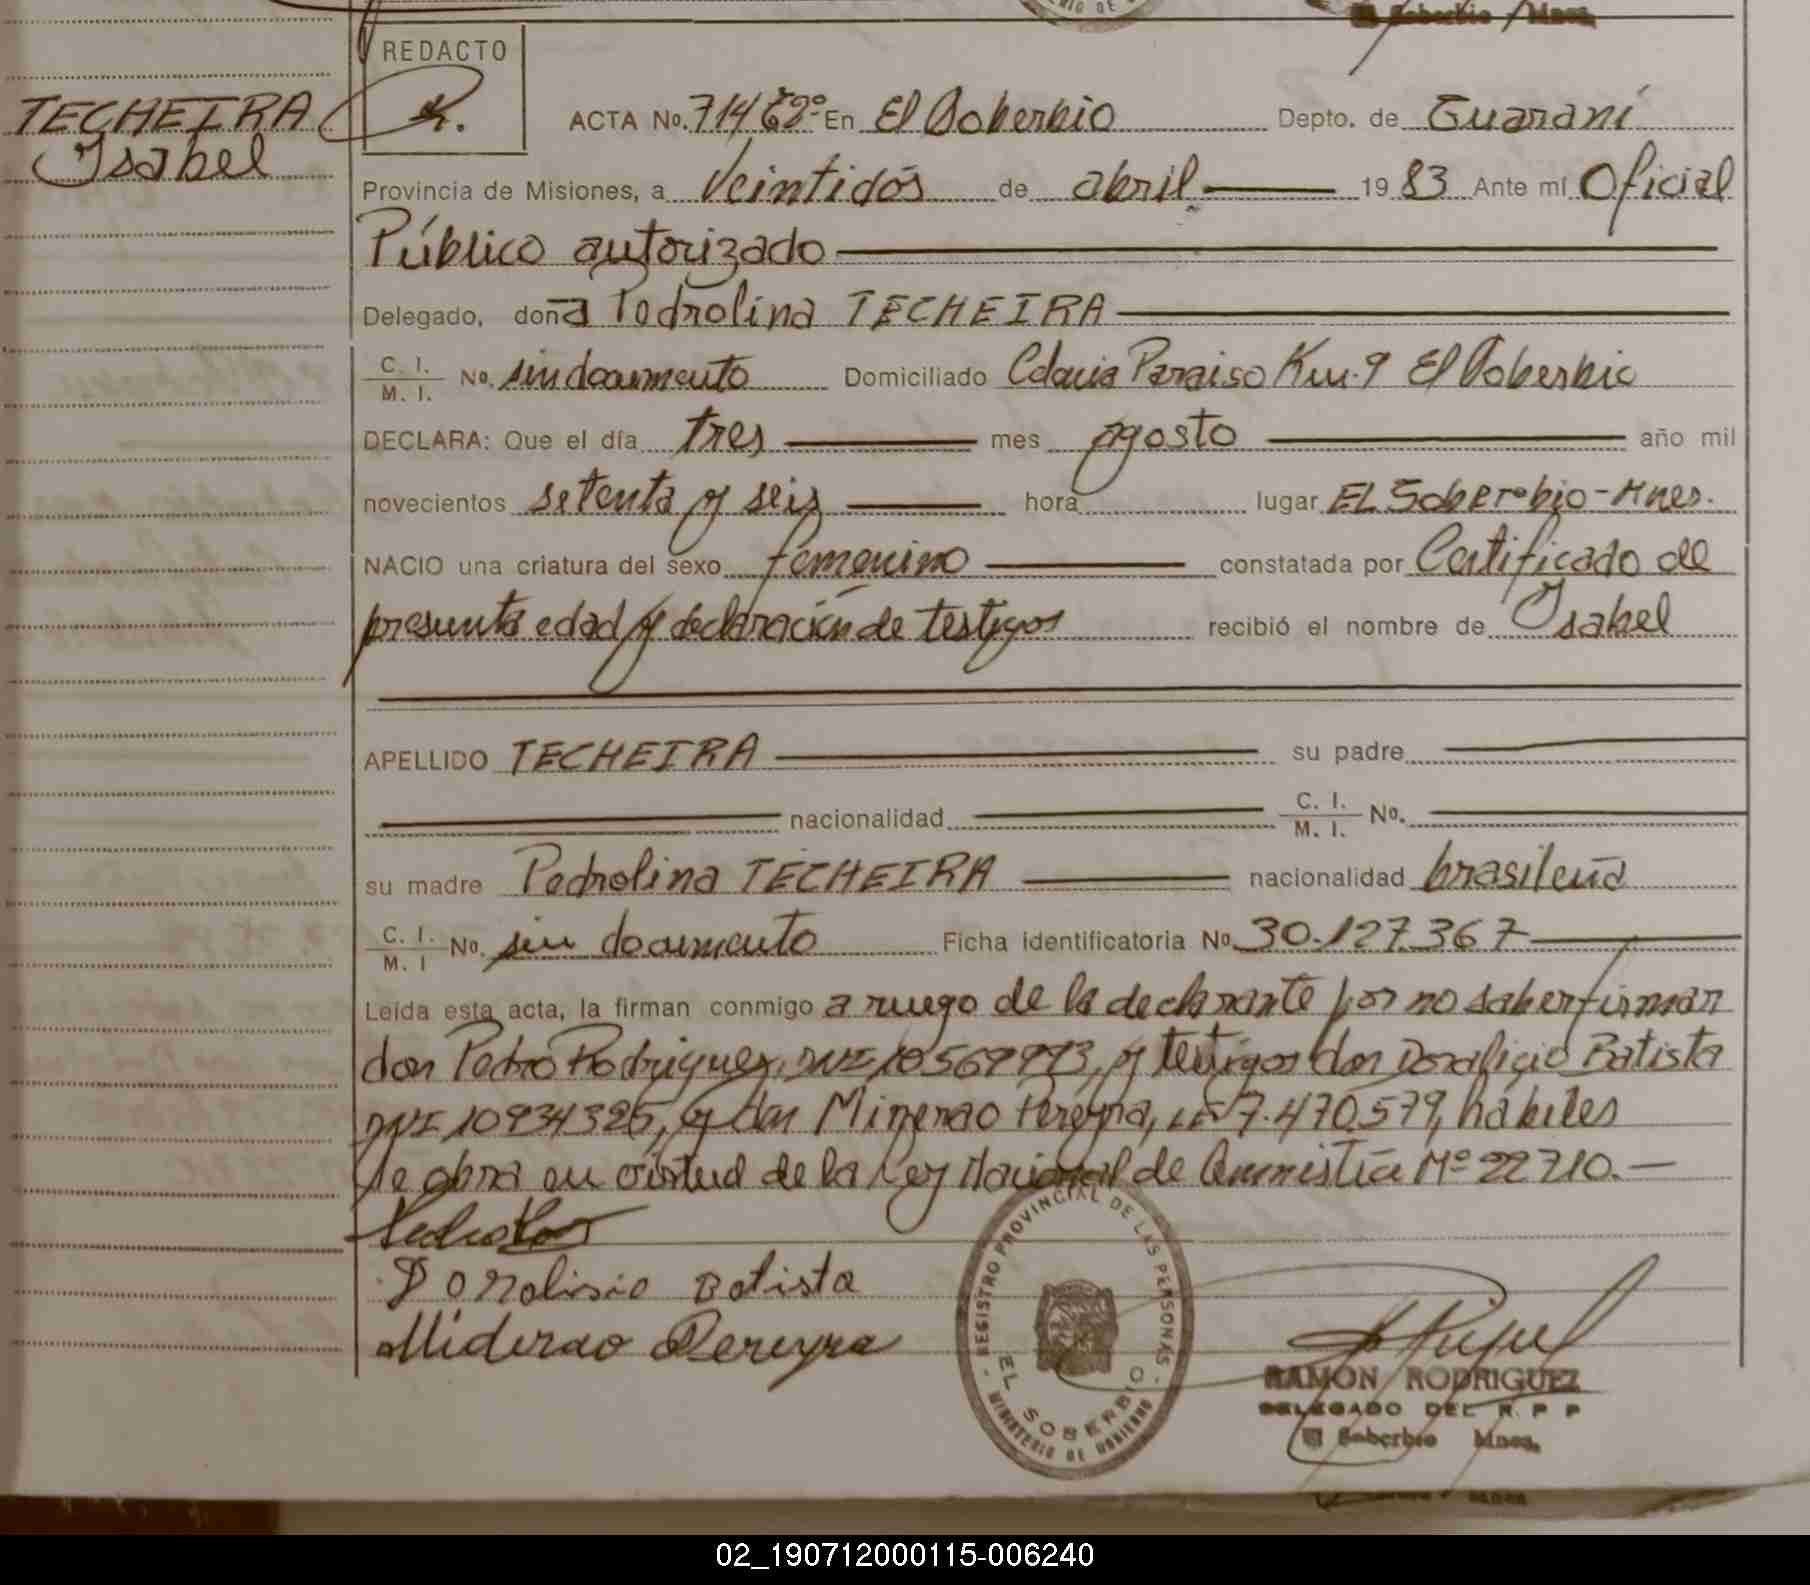 REDACTO
TECHEIRA
Isabel
ACTA No. 714 Eº En El Soberbio Depto. de Guaraní
Provincia de Misiones, a Veintidós de abril 19 83 Ante mí Oficial
Público autorizado
Delegado, doña Pedrolina TECHEIRA
C. I.
M. I. No. sin documento Domiciliado Colonia Paraiso Km. 9 El Soberbio
DECLARA: Que el día tres mes agosto año mil
novecientos setenta y seis hora lugar EL Soberbio - Mnes.
NACIO una criatura del sexo femenino constatada por Certificado de
presunta edad y declaración de testigos recibió el nombre de Isabel
APELLIDO TECHEIRA su padre
nacionalidad C. I.
M. I. No.
su madre Pedrolina TECHEIRA nacionalidad brasileña
C. I.
M. I No. sin documento Ficha identificatoria No. 30.127.367
Leída esta acta, la firman conmigo a ruego de la declarante por no saber firmar
don Pedro Rodriguez, DNI 10569993, y testigos don Doralicio Batista
DNI 10934325, y don Pereyra, LE 7.470.579, hábiles
Se obra en virtud de la Ley Nacional de Amnistía Nº 22710.-
Doralisio Batista
Miderao Pereyra
REGISTRO PROVINCIAL DE LAS PERSONAS
EL SOBERBIO
MINISTERIO DE GOBIERNO
RAMON RODRIGUEZ
DELEGADO DEL R. P P
El Soberbio Mnes.
02_190712000115-006240